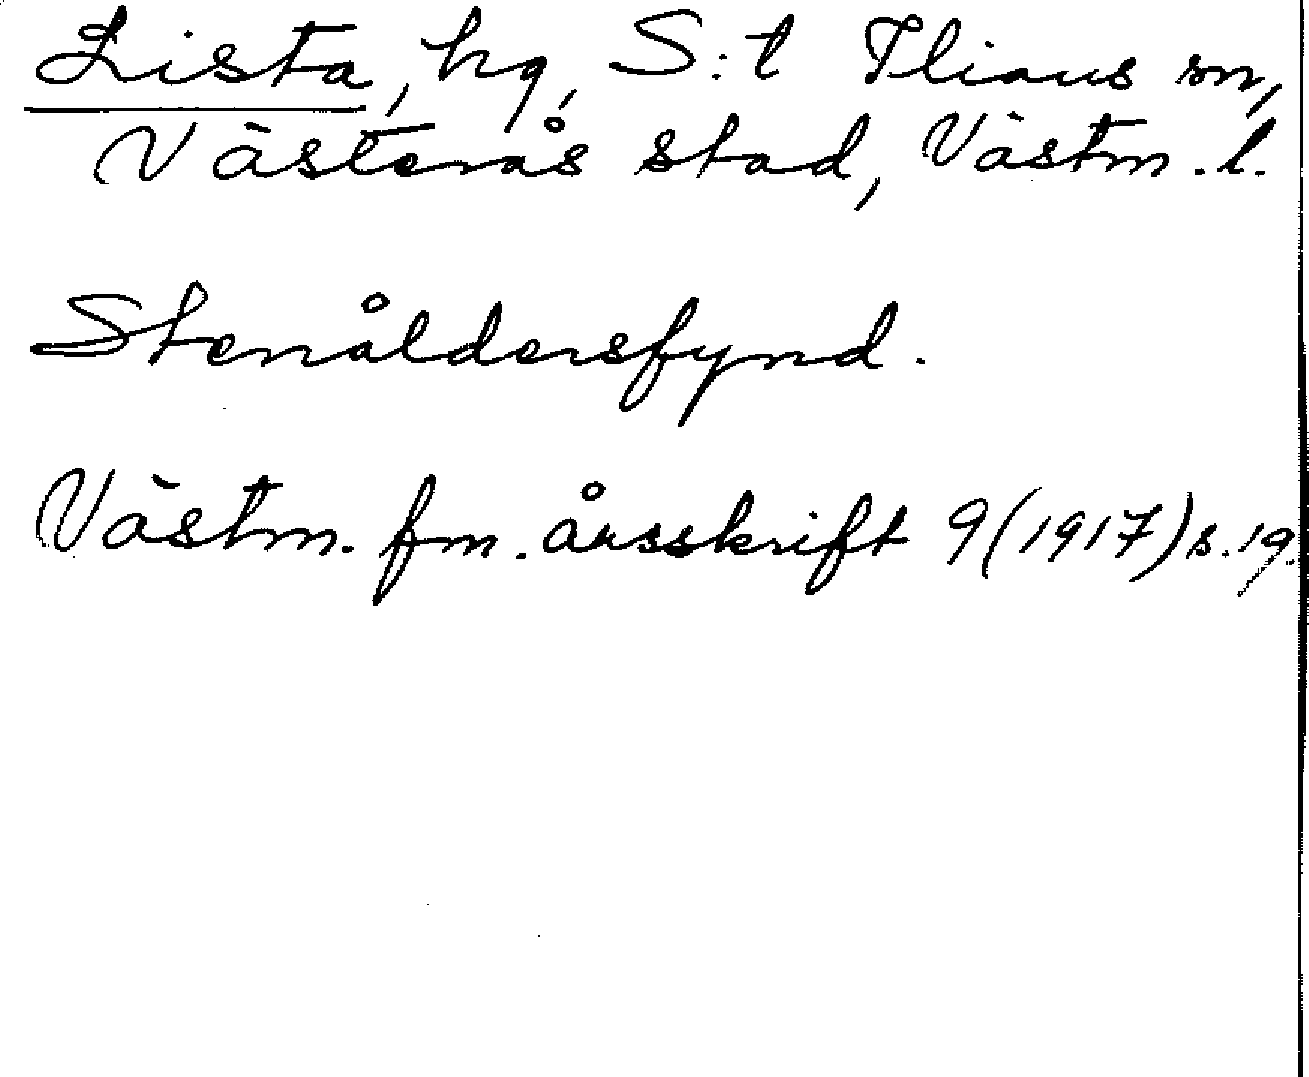 Lista, hg, S:t Ilians sn,
Västerås stad, Västm. l.
Stenåldersfynd.
Västm. fm. årsskrift 9 (1917) s. 19.